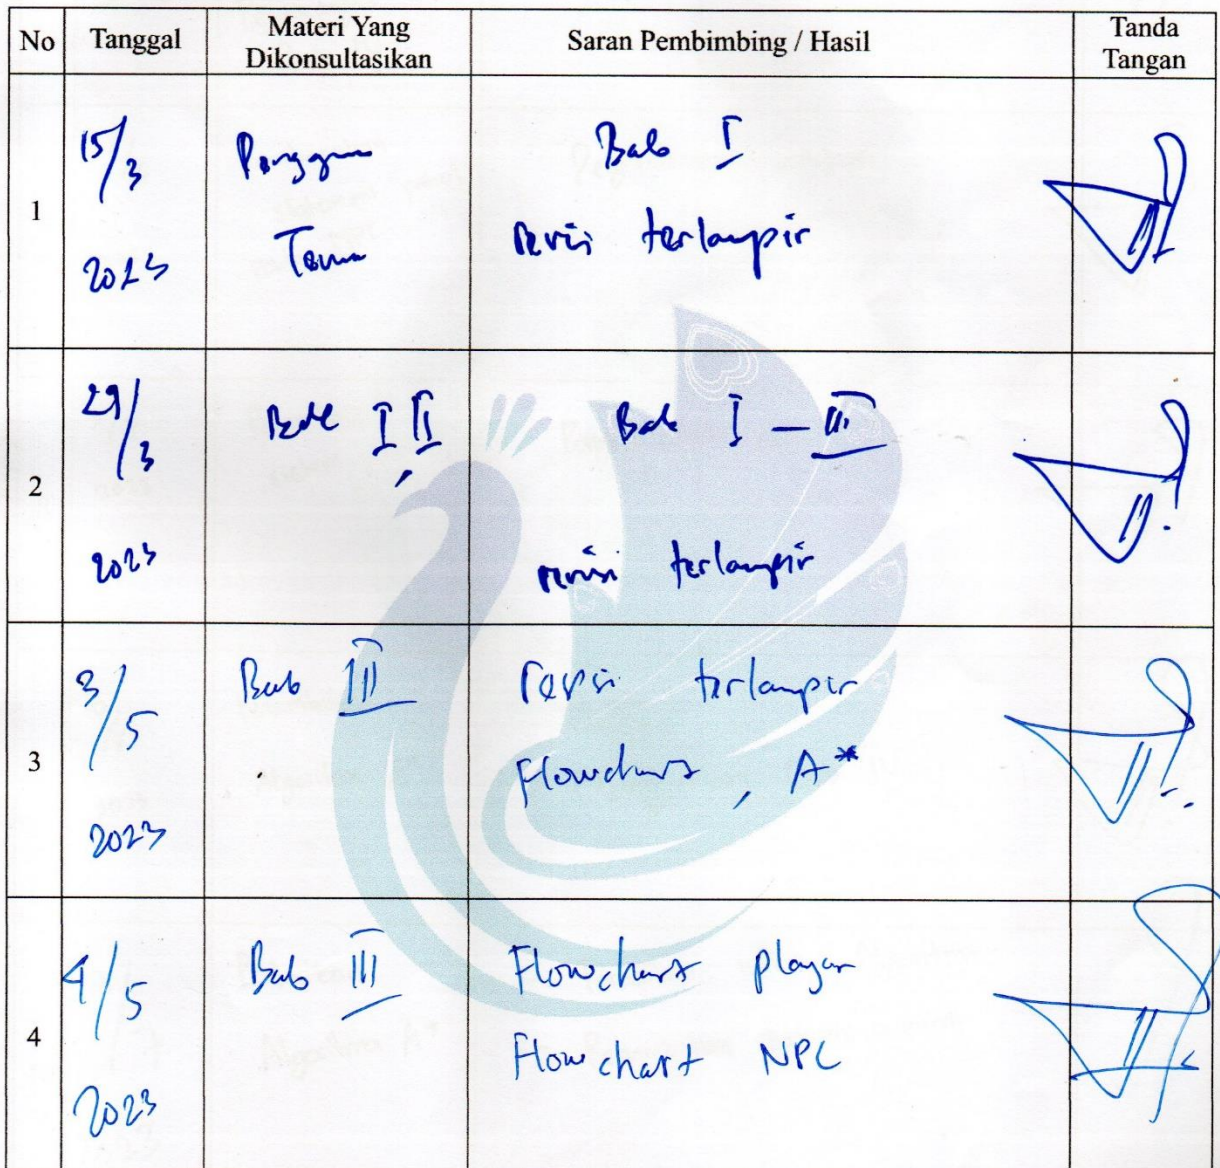 No Tanggal Materi Yang Dikonsultasikan Saran Pembimbing / Hasil Tanda Tangan
1 15/3 2023 Bab I
Tema revisi terlampir
2 29/3 2023 Bab I, II Bab I – III
revisi terlampir
3 3/5 2023 Bab III revisi terlampir
Flowchart, A*
4 4/5 2023 Bab III Flowchart player
Flowchart NPC